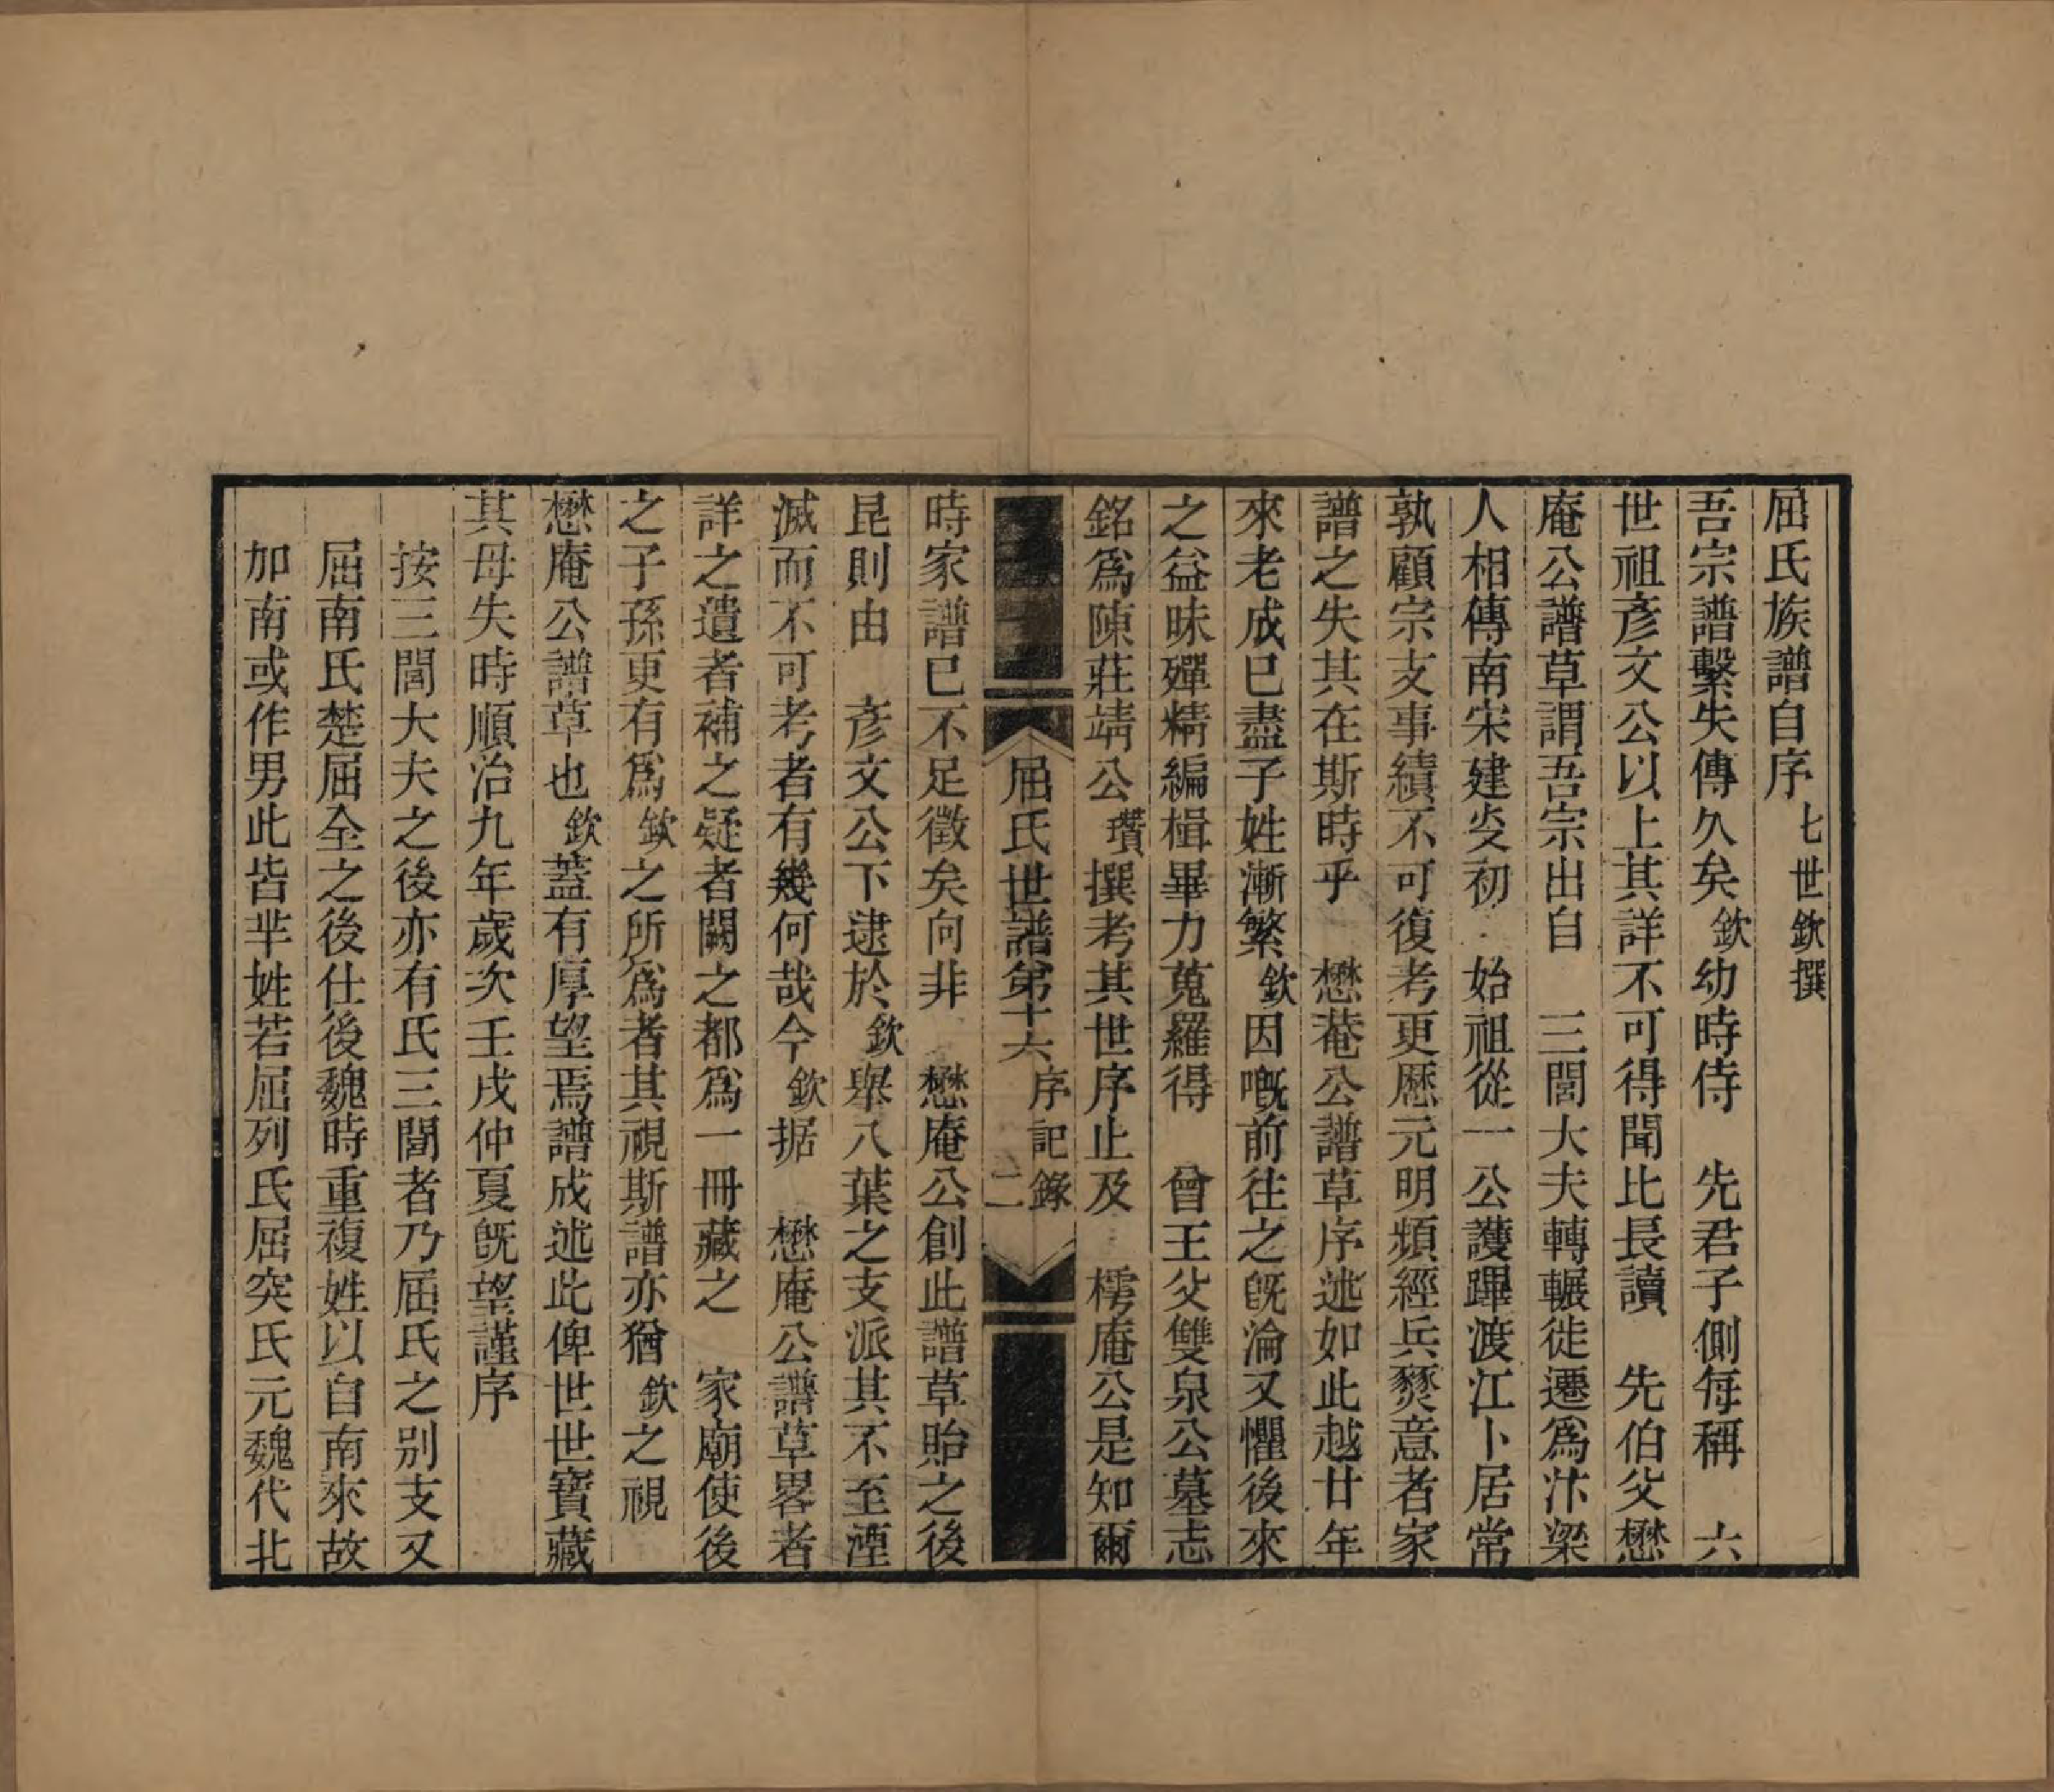 屈氏族譜自序 七世欽撰
吾宗譜繫失傳久矣欽幼時侍 先君子側每稱 六
世祖彥文公以上其詳不可得聞比長讀 先伯父懋
庵公譜草謂吾宗出自 三閭大夫轉輾徙遷爲汴梁
人相傳南宋建炎初 始祖從一公護蹕渡江卜居常
孰顧宗支事績不可復考更歷元明頻經兵燹意者家
譜之失其在斯時乎 懋菴公譜草序述如此越廿年
來老成已盡子姓漸繁欽因嘅前往之旣淪又懼後來
之益昧殫精編楫畢力蒐羅得 曾王父雙泉公墓志
銘爲陳莊靖公瓚撰考其世序止及 樗庵公是知爾
屈氏世譜第十六 序記錄 二
時家譜已不足徵矣向非 懋庵公創此譜草貽之後
昆則由 彥文公下逮於欽舉八葉之支派其不至湮
滅而不可考者有幾何哉今欽据 懋庵公譜草畧者
詳之遺者補之疑者闕之都爲一冊藏之 家廟使後
之子孫更有爲欽之所爲者其視斯譜亦猶欽之視
懋庵公譜草也欽蓋有厚望焉譜成述此俾世世寶藏
其毋失時順治九年歲次壬戌仲夏旣望謹序
按三閭大夫之後亦有氏三閭者乃屈氏之別支又
屈南氏楚屈全之後仕後魏時重複姓以自南來故
加南或作男此皆羋姓若屈列氏屈突氏元魏代北